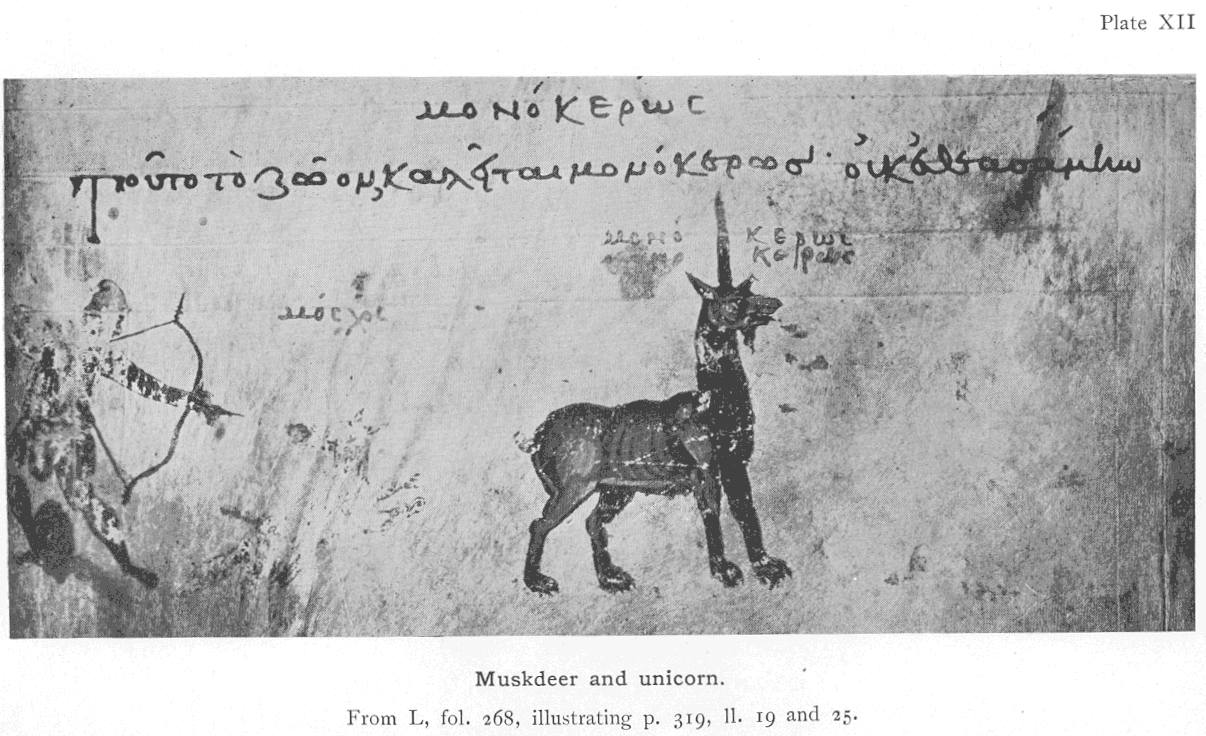 Plate XII
μονόκερως
τοῦτο τὸ ζῶον, καλεῖται μονόκερωσ· οὐκ ἐθεασάμην
μονό κερως
κερως
μόσχ
Muskdeer and unicorn.
From L, fol. 268, illustrating p. 319, ll. 19 and 25.